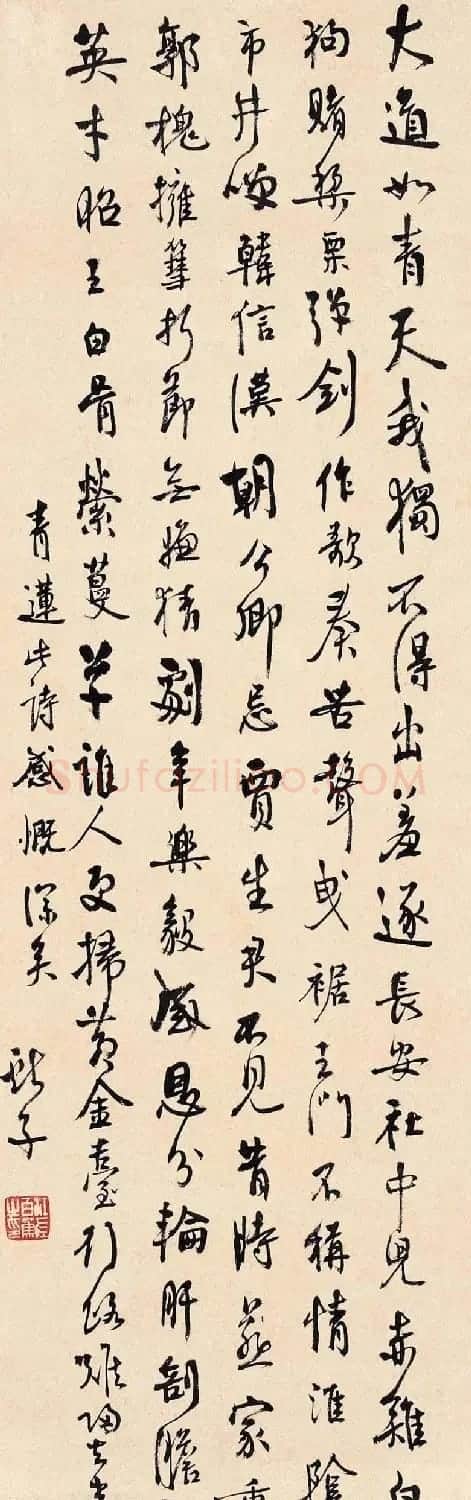 大道如青天我獨不得出羞逐長安社中兒赤雞白
狗賭棃栗彈劍作歌奏苦聲曳裾王門不稱情淮陰
市井咲韓信漢朝公卿忌賈生君不見昔時燕家重
郭槐擁篲折節無嫌猜劇辛樂毅感恩分輸肝剖膽
英才昭王白骨縈蔓草誰人更掃黃金臺行路難歸去來
青蓮此詩感慨深矣
獻子
Shufaziliao.COM